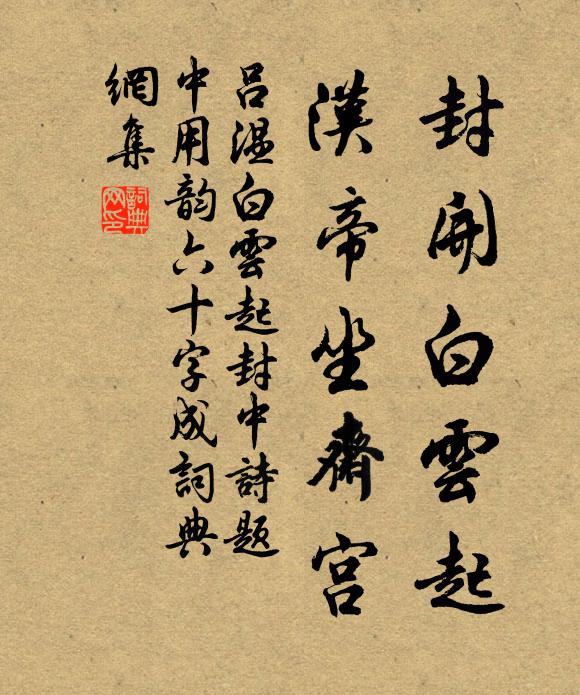 封開白雲起
漢帝坐齋宮
呂温白雲起封中詩題
中用韵六十字成詞典
網集
詞典网印